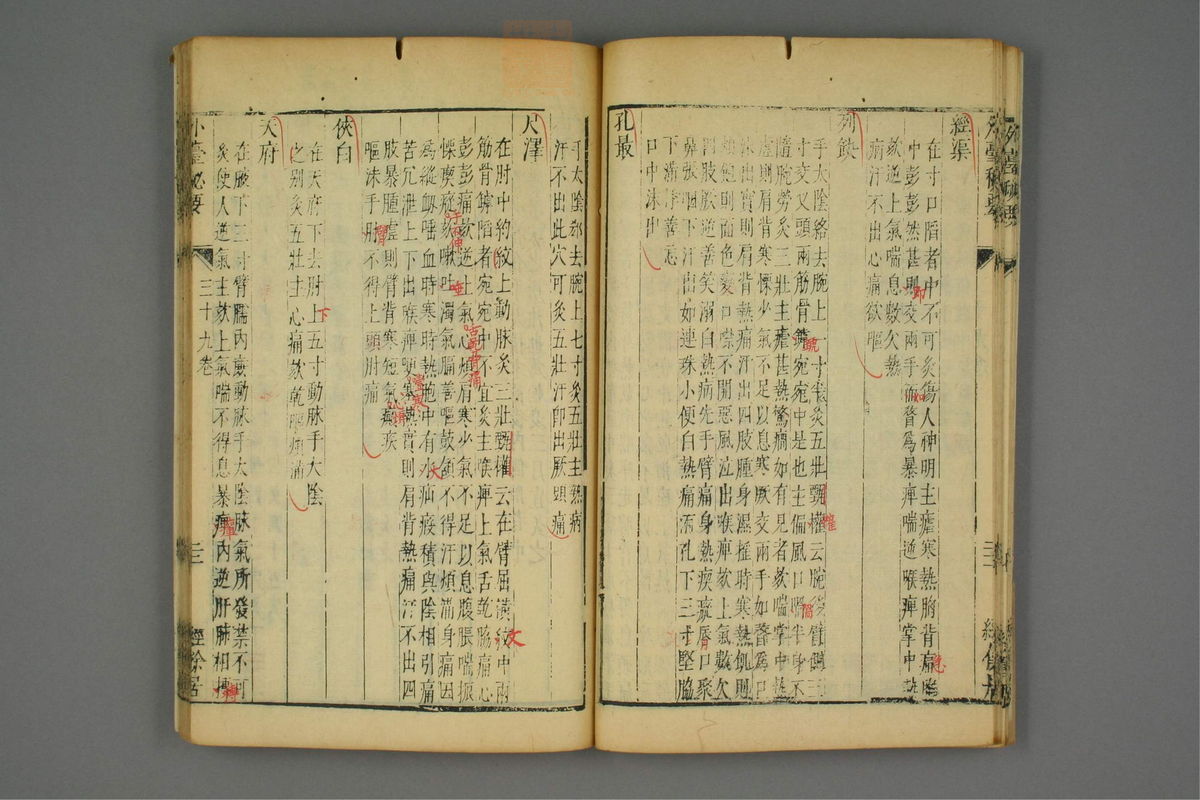 經渠
在寸口陷者中不可灸傷人神明主瘧寒熱胸背痛
中彭彭然甚則交兩手而瞀爲暴痺喘逆喉痺掌中熱
欬逆上氣喘息數欠熱
病汗不出心痛欲嘔
列缺
手太陰絡去腕上一寸半灸五壯甄權云腕後臂側三
寸交叉頭兩筋骨罅宛宛中是也主偏風口喎半身不
隨腕勞灸三壯主瘧甚熱驚癎如有見者欬喘掌中熱
虛則肩背寒慄少氣不足以息寒厥交兩手如瞀爲口
出實則肩背熱痛汗出四肢腫身濕搖時寒熱飢則
飽則面色變口噤不開惡風泣出喉痺欬上氣數欠
肢厥逆善笑溺白熱病先手臂痛身熱瘈瘲唇口聚
鼻張目下汗出如連珠小便白熱痛
下滿悸善忘
口中沫出
孔最
手太陰郄去腕上七寸灸五壯主熱病
汗不出此穴可灸五壯汗即出厥頭痛
尺澤
在肘中約紋上動脉灸三壯甄權云在臂屈橫紋中兩
筋骨罅陷者宛宛中不宜灸主喉痺上氣舌乾脇痛心
彭彭痛欬逆上氣心煩肩寒少氣不足以息腹脹喘振
慄瘈瘲欬嗽吐濁氣膈善嘔鼓頷不得汗煩滿身痛因
爲縱衄嘔血時寒時熱胞中有大疝瘕積與陰相引痛
苦冗泄上下出喉痺哽寒熱實則肩背熱痛汗不出四
肢暴腫虛則臂背寒短氣癲疾
嘔沫手肘不得上頭肘痛
俠白
在天府下去肘上五寸動脉手太陰
之別灸五壯主心痛欬乾嘔煩滿
天府
在腋下三寸臂臑內廉動脉手太陰脉氣所發禁不可
灸使人逆氣主欬上氣喘不得息暴痺內逆肝肺相搏
外臺秘要
三十九卷
三
經餘居